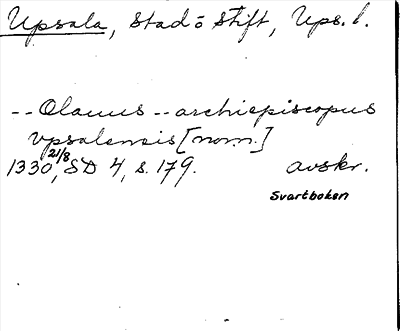 Upsala, Stad o Stift, Ups. l.
-- Olauus -- archiepiscopus
vpsalensis [nom.]
1330 21/8, SD 4, s. 179. avskr.
Svartboken